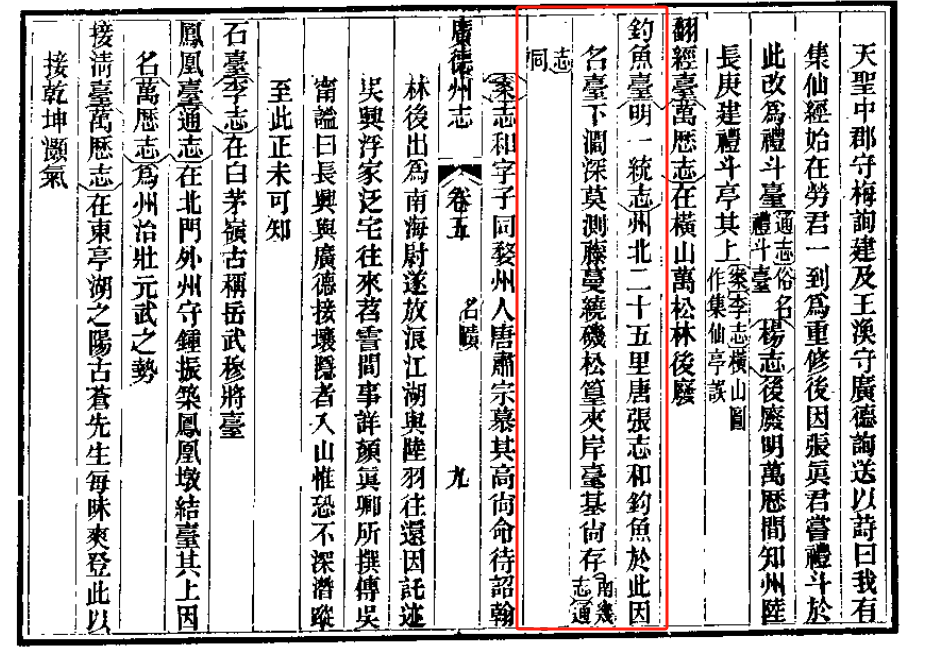 天聖中郡守梅詢建及王渙守廣德詢送以詩曰我有
集仙經始在勞君一到爲重修後因張眞君嘗禮斗於
此改爲禮斗臺通志俗名禮斗臺楊志後廢明萬歷間知州陸
長庚建禮斗亭其上案李志橫山圖作集仙亭誤
翻經臺萬歷志在橫山萬松林後廢
釣魚臺明一統志州北二十五里唐張志和釣魚於此因
名臺下澗深莫測藤蔓繞磯松篁夾岸臺基尙存南畿志通
志同
案志和字子同婺州人唐肅宗慕其高尙命待詔翰
廣德州志 卷五 名蹟 九
林後出爲南海尉遂放浪江湖與陸羽往還因託迹
吳興浮家泛宅往來苕霅間事詳顏眞卿所撰傳吳
甯謐曰長興與廣德接壤隱者入山惟恐不深潛蹤
至此正未可知
石臺李志在白茅嶺古稱岳武穆將臺
鳳凰臺通志在北門外州守鍾振築鳳凰墩結臺其上因
名萬歷志爲州治壯元武之勢
接淸臺萬歷志在東亭湖之陽古蒼先生每昧爽登此以
接乾坤灝氣